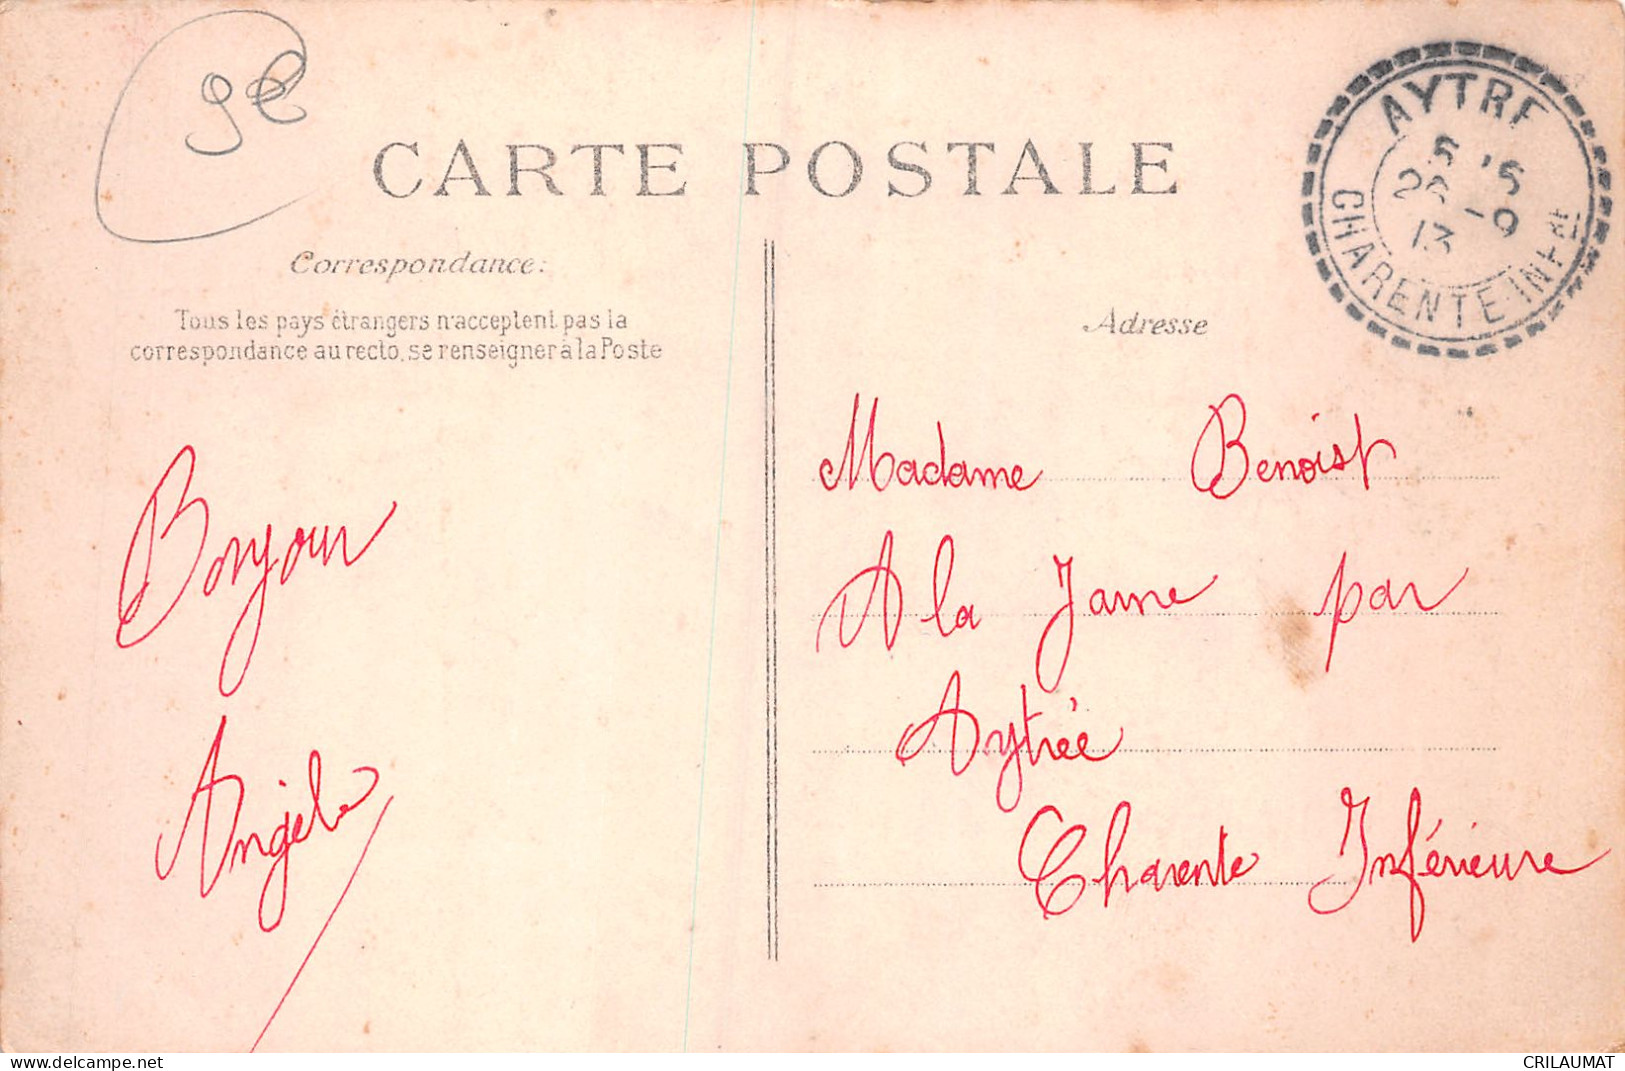 CARTE POSTALE
Correspondance:
Tous les pays étrangers n'acceptent pas la
correspondance au recto, se renseigner à la Poste
Bonjour
Angèle
Adresse
Madame Benoist
A la Jarne par
Aytrée
Charente Inférieure
AYTRE
CHARENTE INFRE
13
www.delcampe.net
CRILAUMAT